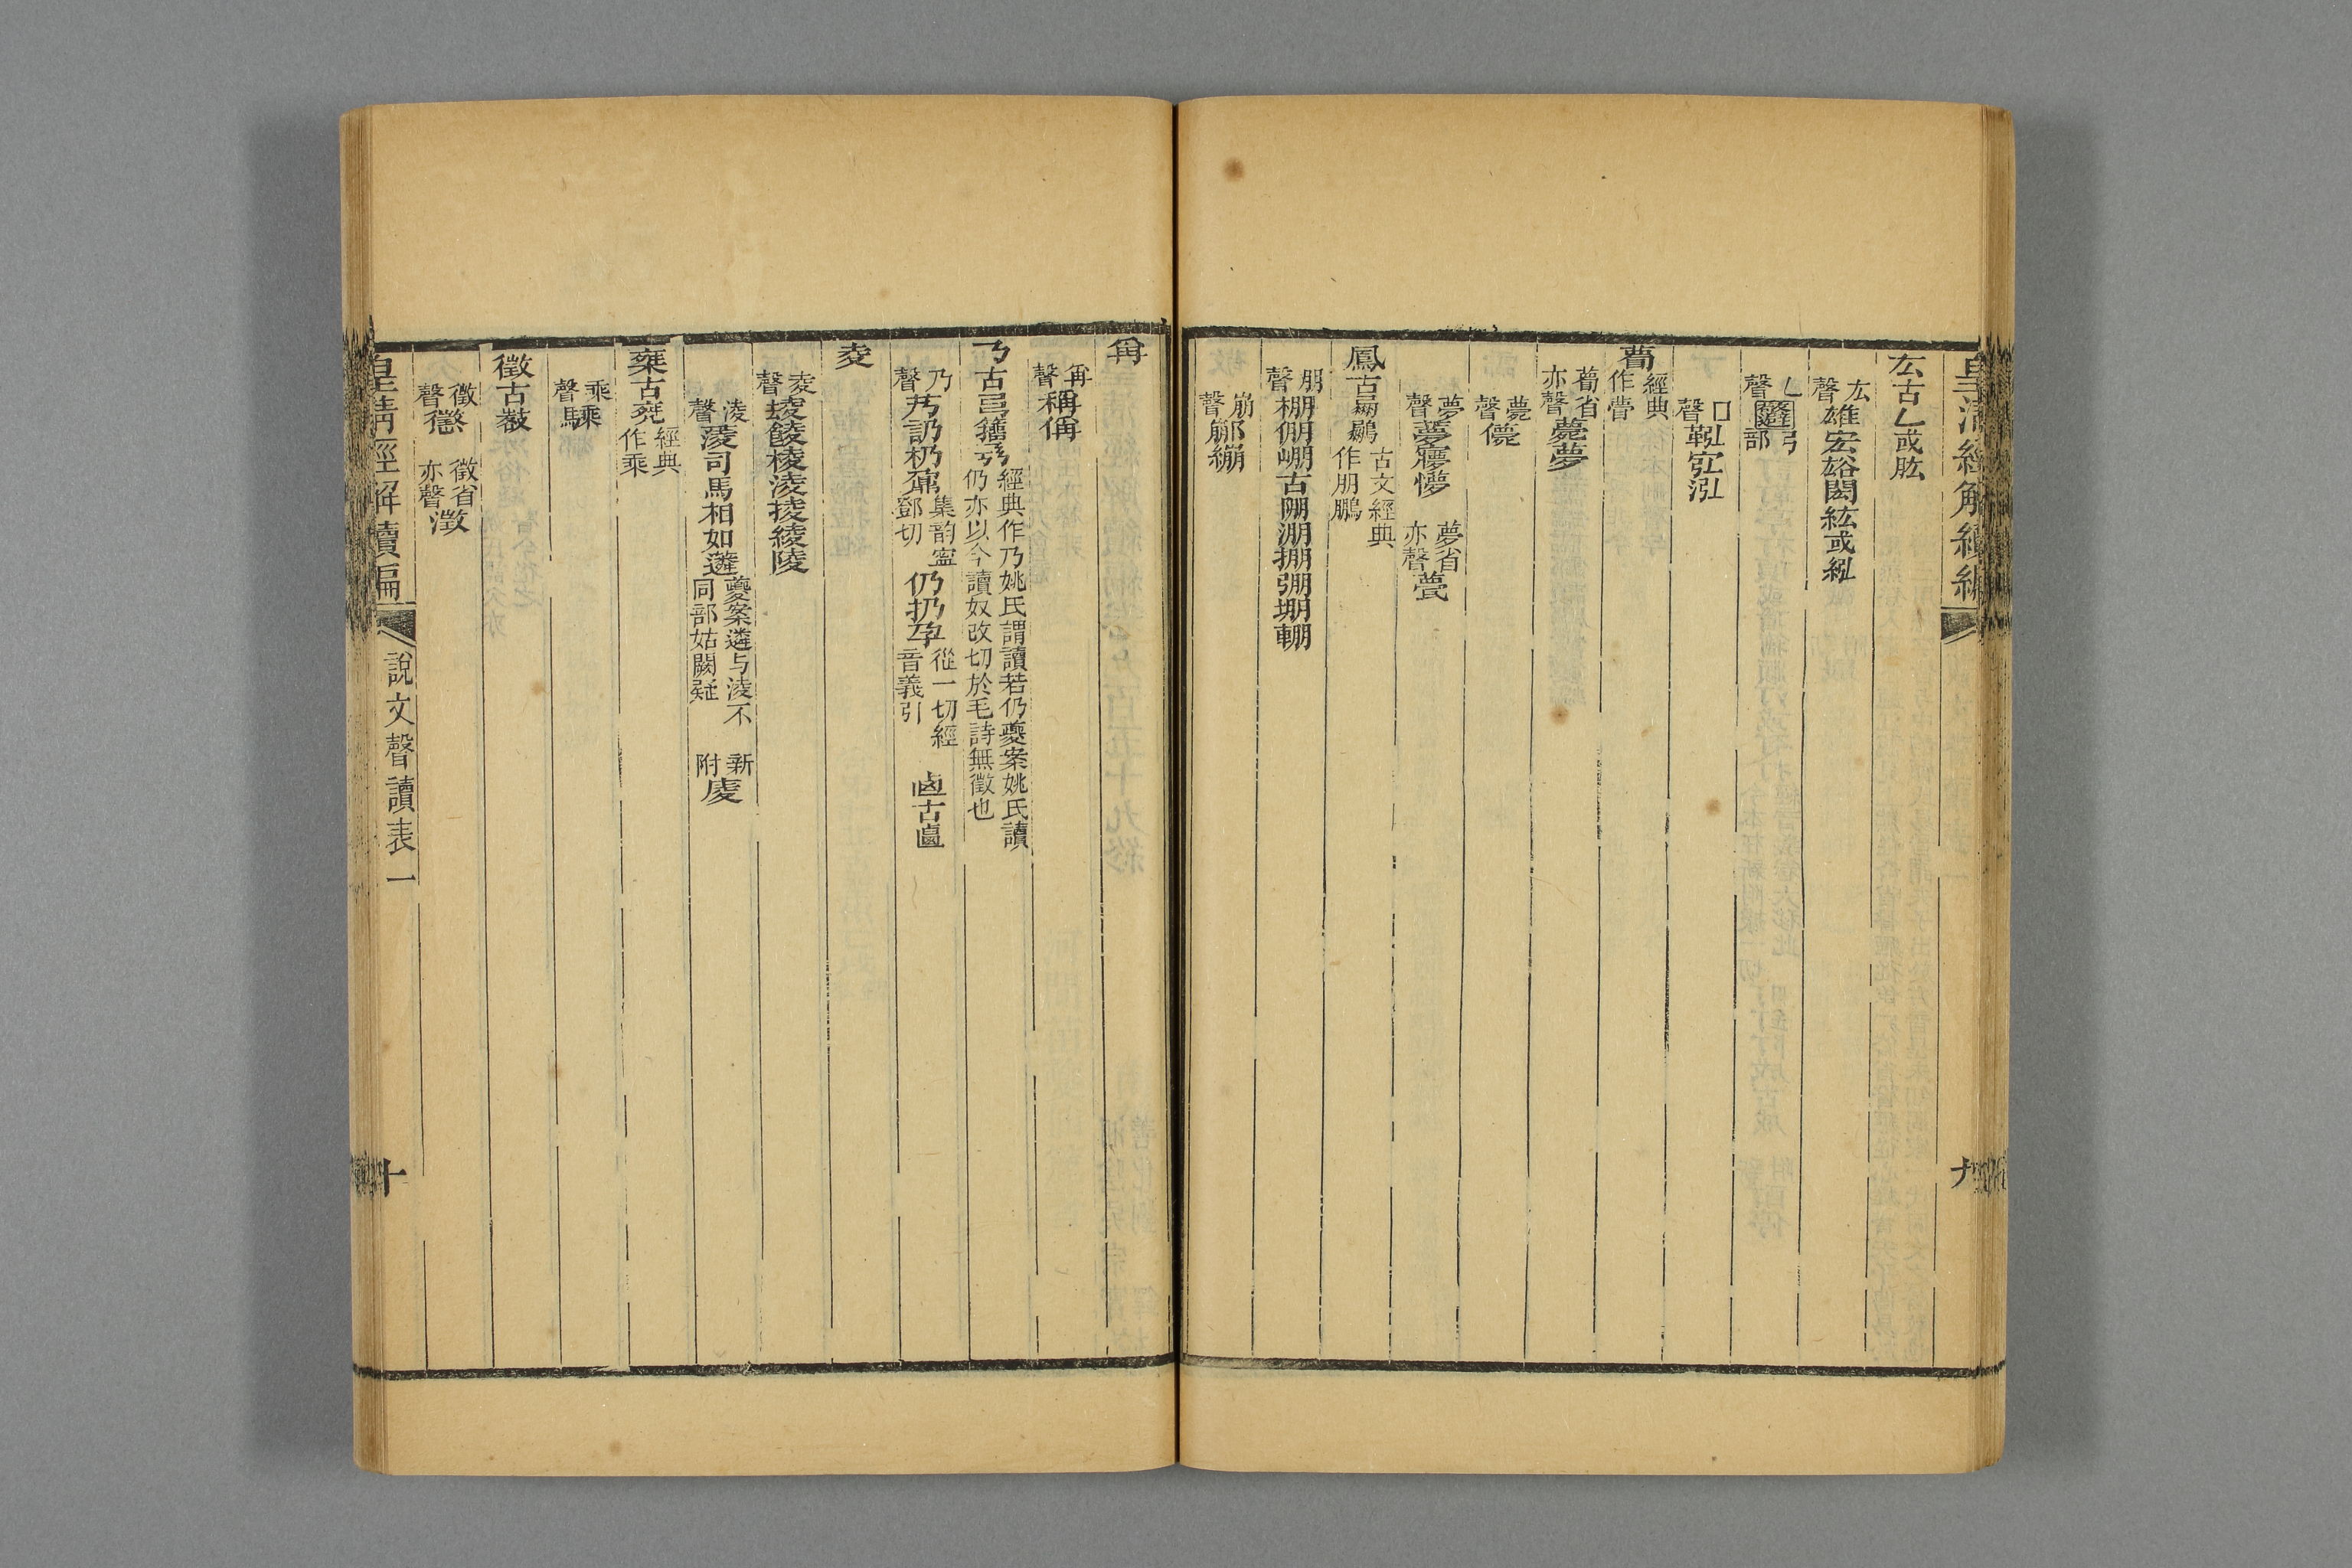 皇清經解續編
九
厷古乙或肱
厷聲雄宏谹閎紘或紭
乚聲 弓部
囗聲鞃宖泓
瞢經典作瞢
瞢省亦聲薨夢
薨聲儚
夢聲㝱懜 夢省亦聲甍
鳳古朋鵬古文經典作朋鵬
朋聲棚倗崩古淜掤弸堋輣
崩聲䣙繃
爯
爯聲稱偁
乃古弓經典作乃姚氏謂讀若仍夔案姚氏讀仍亦以今讀奴改切於毛詩無徵也
乃聲艿訒杋鼐集韵寍鄧切仍扔孕從一切經音義引 卤古卥
夌
夌聲餕棱淩掕綾陵
淩聲蔆司馬相如遴夔案遴与淩不同部姑闕疑 新附㥄
椉古乘經典作乘
乘聲騬
徵古
徵聲懲 徵省亦聲澂
皇清經解續編
說文聲讀表一
十